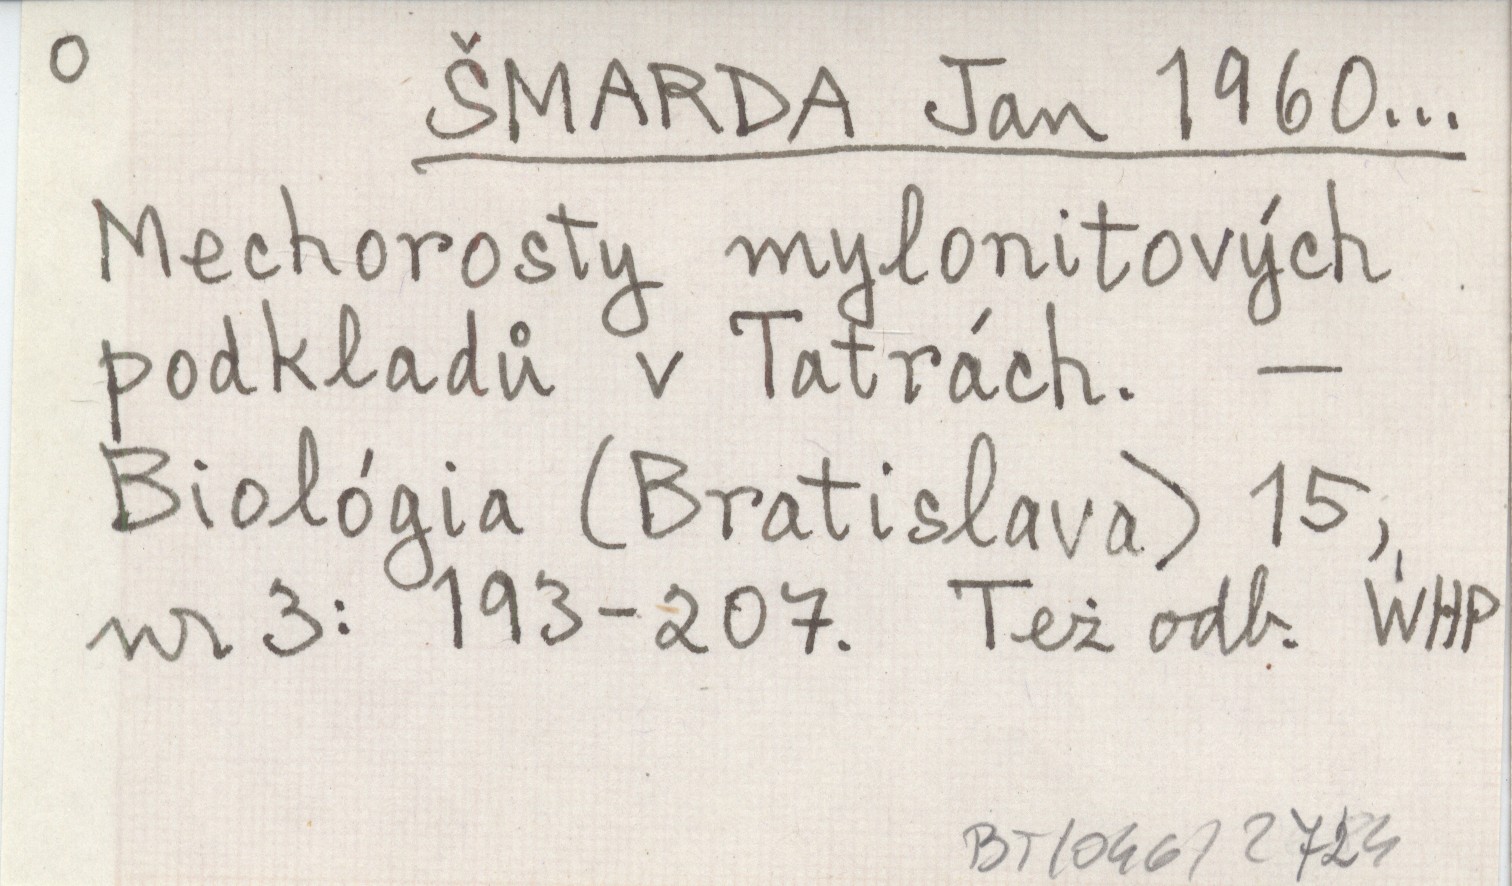 O
ŠMARDA Jan 1960...
Mechorosty mylonitových
podkladů v Tatrách. —
Biológia (Bratislava) 15,
nr 3: 193-207. Też odb. WHP